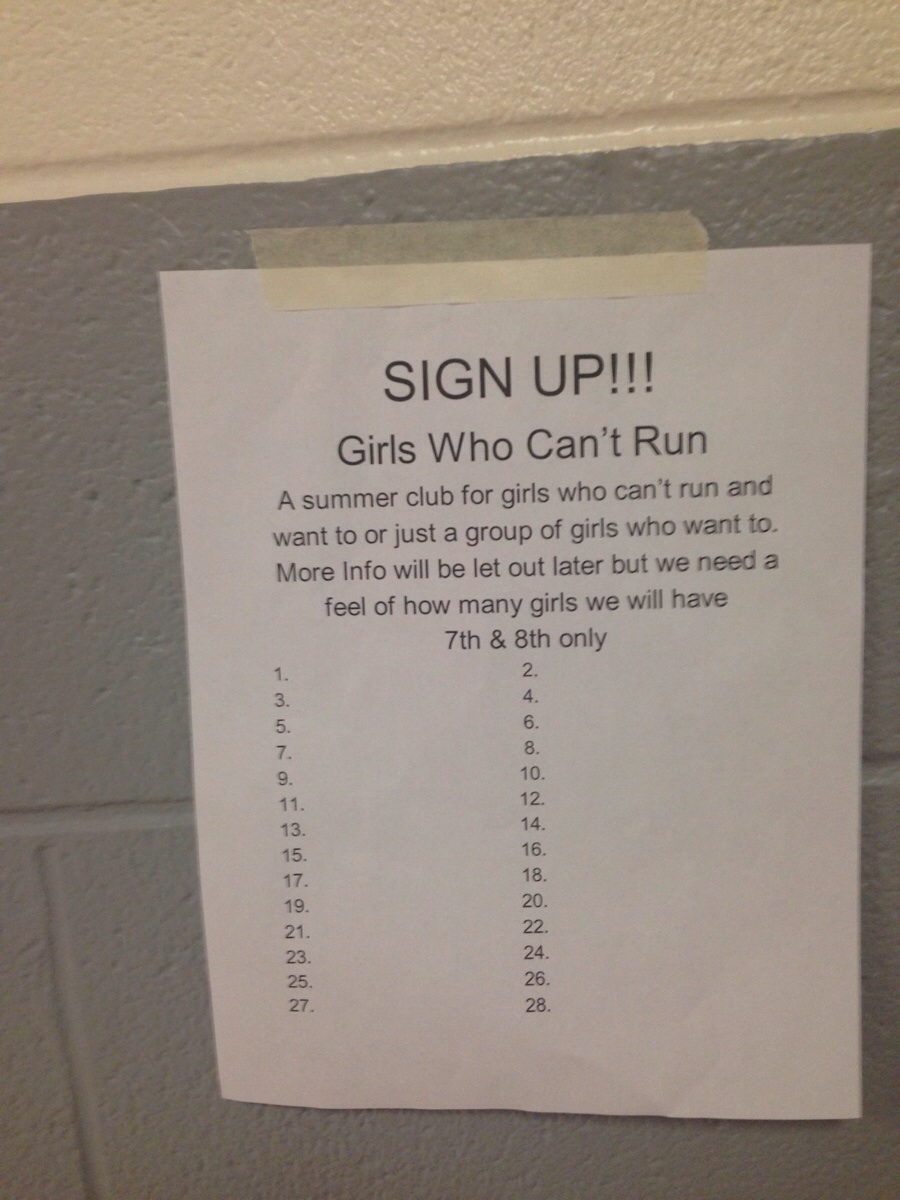 SIGN UP!!!
Girls Who Can't Run
A summer club for girls who can't run and
want to or just a group of girls who want to.
More Info will be let out later but we need a
feel of how many girls we will have
7th & 8th only
1. 2.
3. 4.
5. 6.
7. 8.
9. 10.
11. 12.
13. 14.
15. 16.
17. 18.
19. 20.
21. 22.
23. 24.
25. 26.
27. 28.